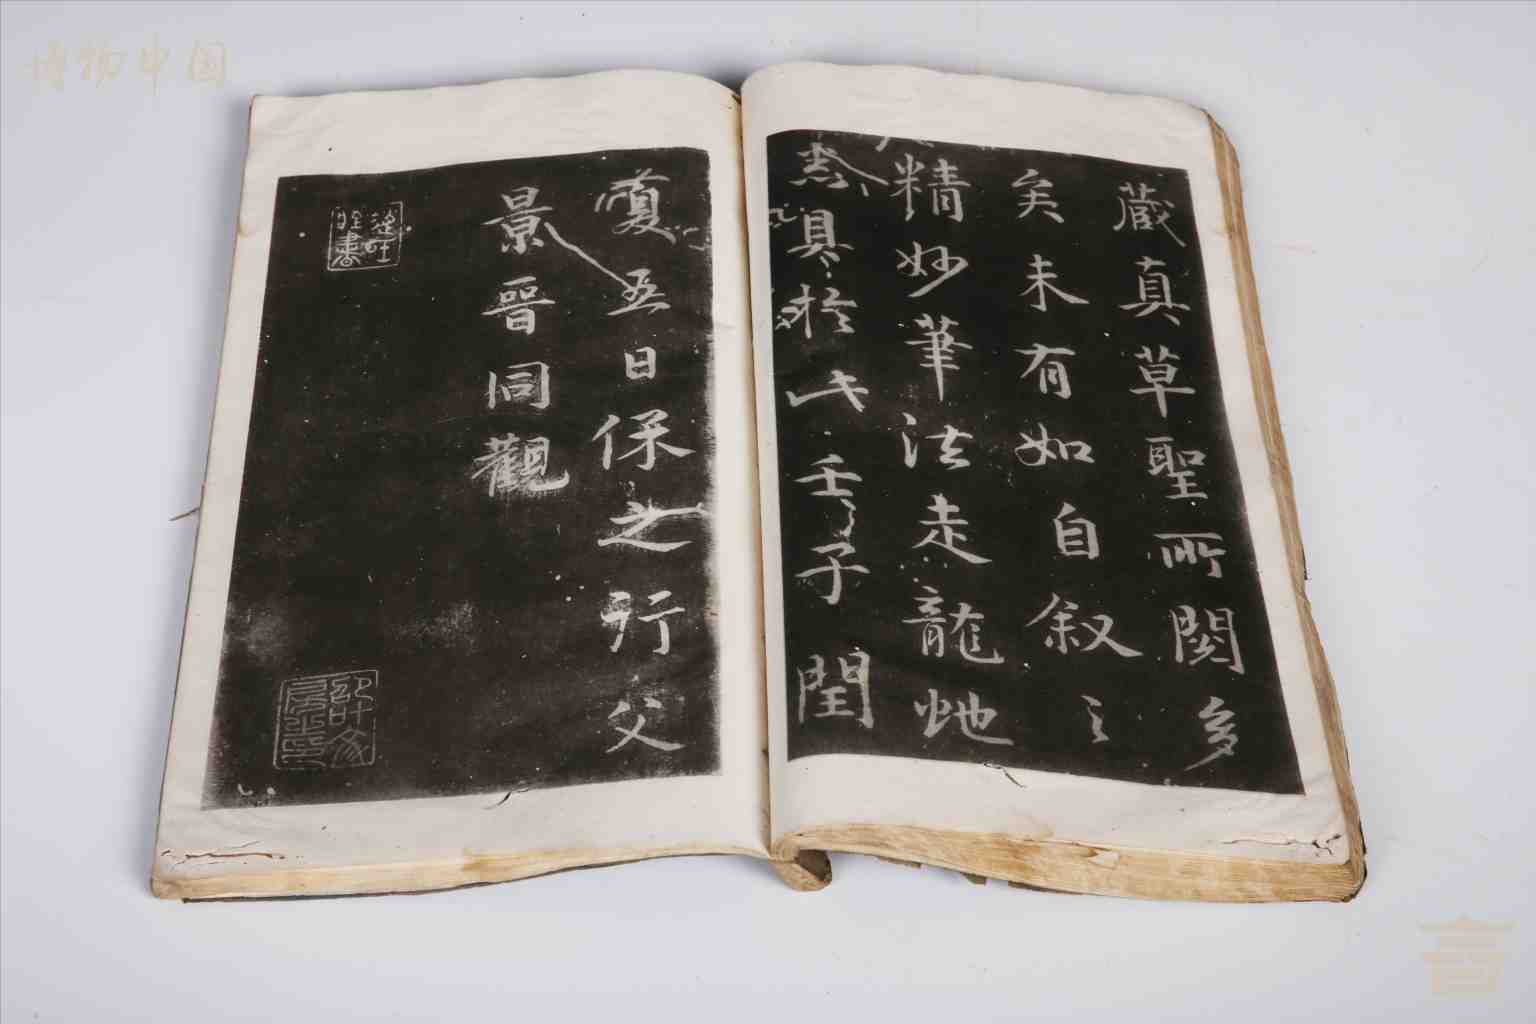 博物中国
藏真草聖所閱多
矣未有如自叙之
精妙筆法走龍虵
悉具於此壬子閏
夏五日保之行父
景晉同觀
邵叶文
房之印